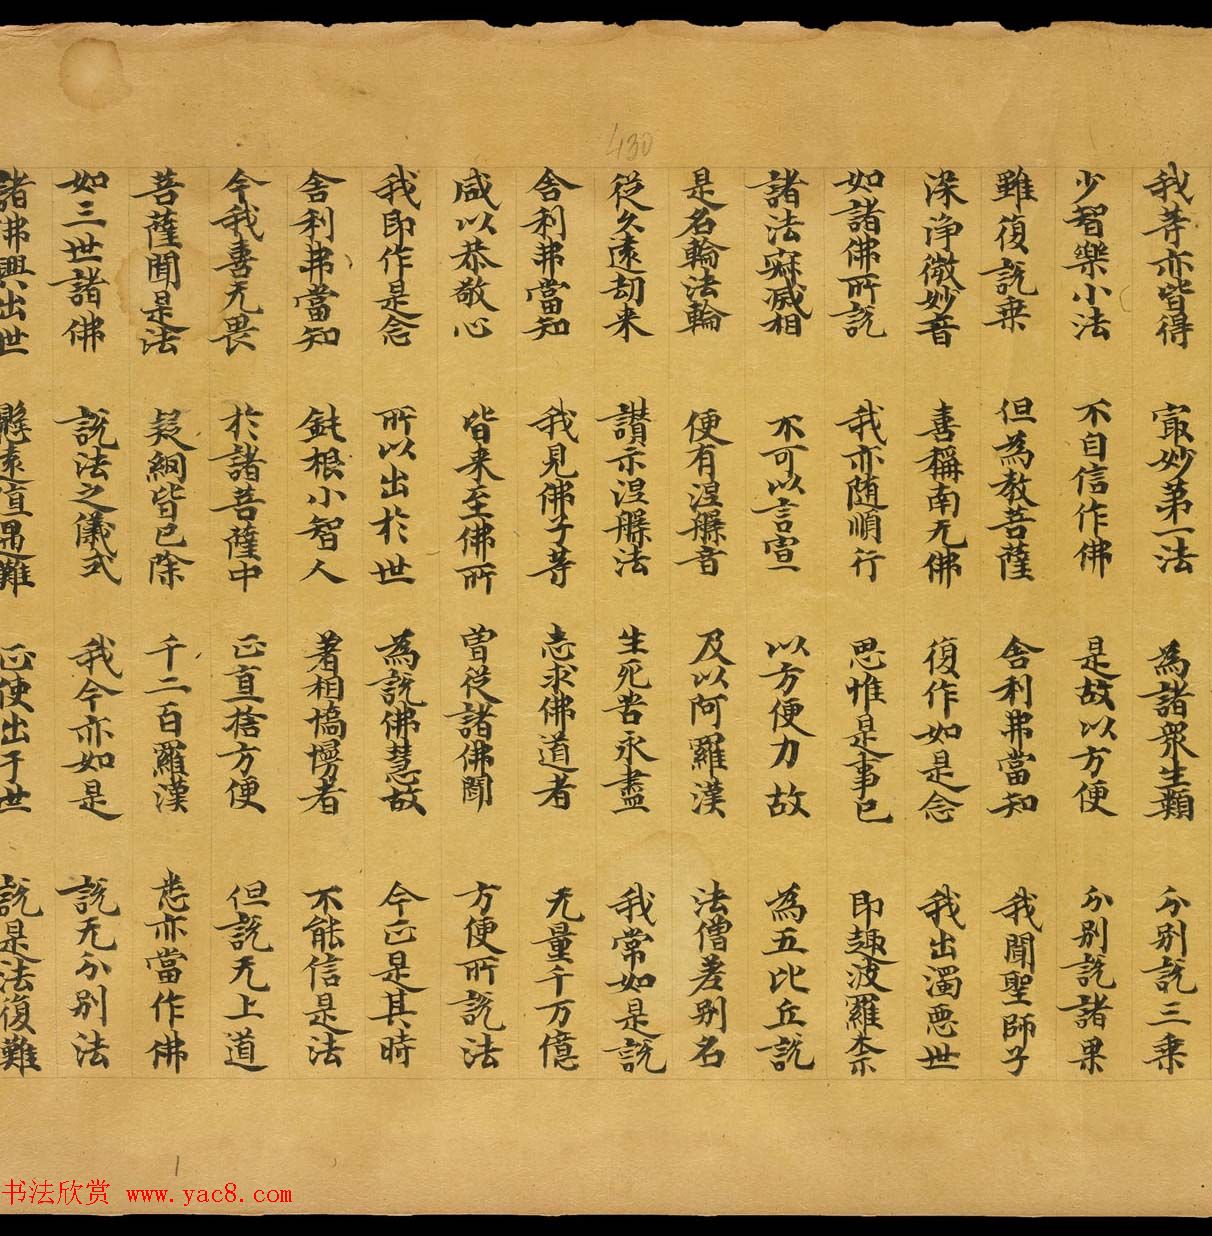 430
我等亦皆得 冣妙第一法 為諸衆生類 分别説三乗
少智樂小法 不自信作佛 是故以方便 分别説諸果
雖復説乗 但為教菩薩 舎利弗當知 我聞聖師子
深浄微妙音 善稱南无佛 復作如是念 我出濁惡世
如諸佛所説 我亦随順行 思惟是事已 即趣波羅柰
諸法寐滅相 不可以言宣 以方便力故 為五比丘説
是名輪法輪 便有涅槃音 及以阿羅漢 法僧差别名
従久遠劫来 讃示涅槃法 生死苦永盡 我常如是説
舎利弗當知 我見佛子等 志求佛道者 无量千万億
咸以恭敬心 皆来至佛所 曽従諸佛聞 方便所説法
我即作是念 所以出於世 為説佛慧故 今正是其時
舎利弗當知 鈍根小智人 著相憍慢者 不能信是法
今我喜无畏 於諸菩薩中 正直捨方便 但説无上道
菩薩聞是法 疑網皆已除 千二百羅漢 悉亦當作佛
如三世諸佛 説法之儀式 我今亦如是 説无分别法
諸佛興出世 懸遠值遇難 正使出于世 説是法復難
书法欣赏 www.yac8.com